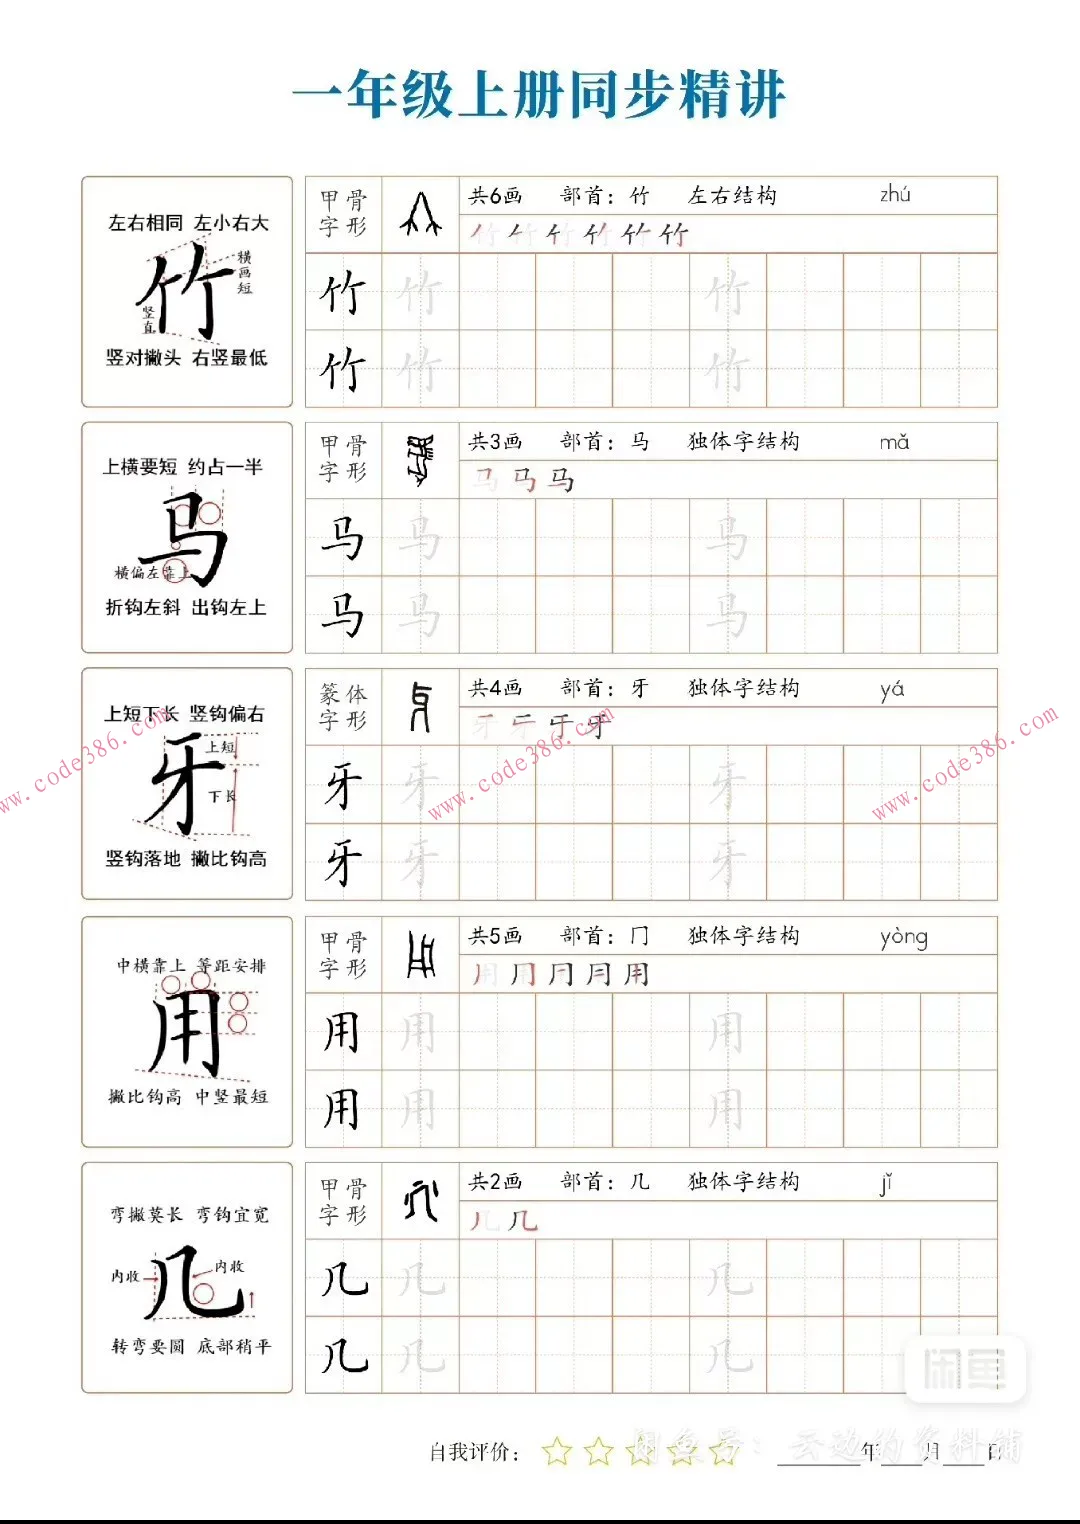 一年级上册同步精讲
左右相同 左小右大
横画短
竖直
竹
竖对撇头 右竖最低
甲骨字形
共6画 部首：竹 左右结构 zhú
竹 竹 竹 竹 竹 竹
竹 竹 竹
竹 竹 竹
上横要短 约占一半
马
横偏左靠上
折钩左斜 出钩左上
甲骨字形
共3画 部首：马 独体字结构 mǎ
马 马 马
马 马 马
马 马 马
上短下长 竖钩偏右
上短
牙
下长
竖钩落地 撇比钩高
篆体字形
共4画 部首：牙 独体字结构 yá
牙 牙 牙 牙
牙 牙 牙
牙 牙 牙
www.code386.com
www.code386.com
www.code386.com
中横靠上 等距安排
用
撇比钩高 中竖最短
甲骨字形
共5画 部首：冂 独体字结构 yòng
用 用 用 用 用
用 用 用
用 用 用
弯撇莫长 弯钩宜宽
内收 几 内收
转弯要圆 底部稍平
甲骨字形
共2画 部首：几 独体字结构 jǐ
几 几
几 几 几
几 几 几
闲鱼
自我评价： 年 月 日
闲鱼号：云边的资料铺